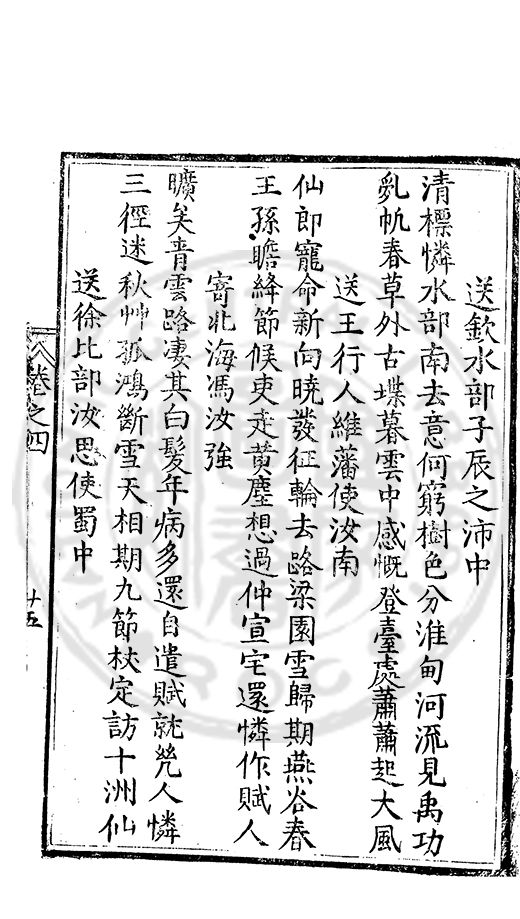 送欽水部子辰之沛中
清標憐水部南去意何窮樹色分淮甸河流見禹功
亂帆春草外古堞暮雲中感慨登臺處蕭蕭起大風
送王行人維藩使汝南
仙郎寵命新向曉發征輪去路梁園雪歸期燕谷春
王孫瞻絳節候吏走黃塵想過仲宣宅還憐作賦人
寄北海馮汝強
曠矣青雲路凄其白髮年病多還自遣賦就凭人憐
三徑迷秋艸孤鴻斷雪天相期九節杖定訪十洲仙
送徐比部汝思使蜀中
卷之四
十五